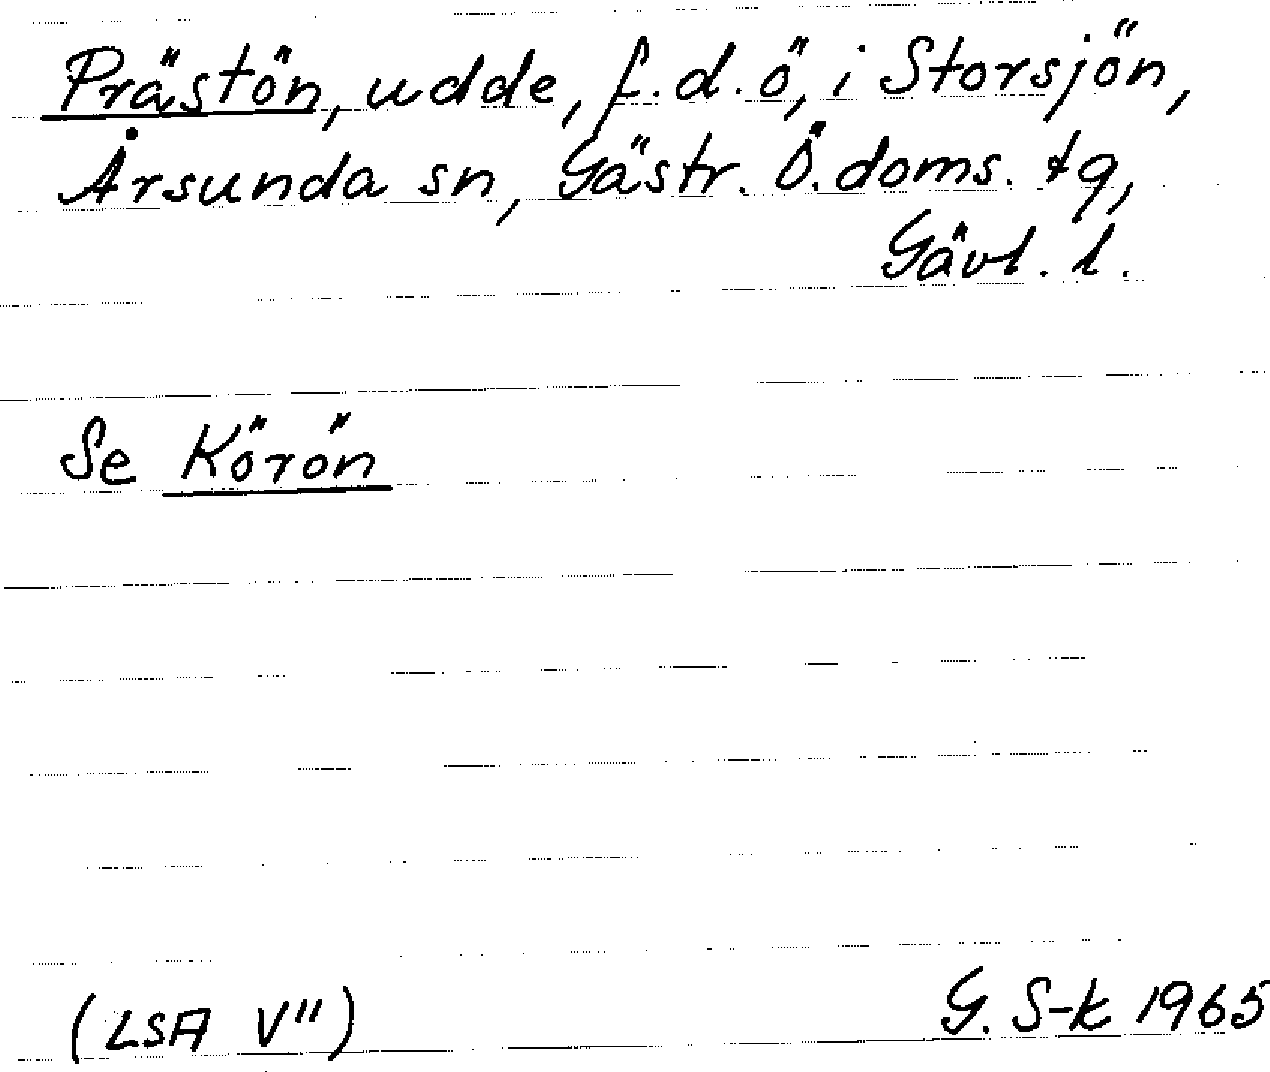 Prästön, udde, f.d. ö, i Storsjön,
Årsunda sn, Gästr. Ö. doms. tg,
Gävl. l.
Se Körön
(LSA V")
G. S-k 1965